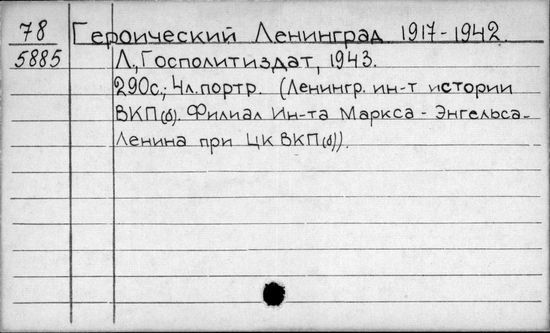 78 Героический Ленинград 1917-1942.
5885 Л., Госполитиздат, 1943.
290с.; 4л.портр. (Ленингр. ин-т истории
ВКП(б). Филиал Ин-та Маркса - Энгельса-
Ленина при ЦК ВКП(б)).